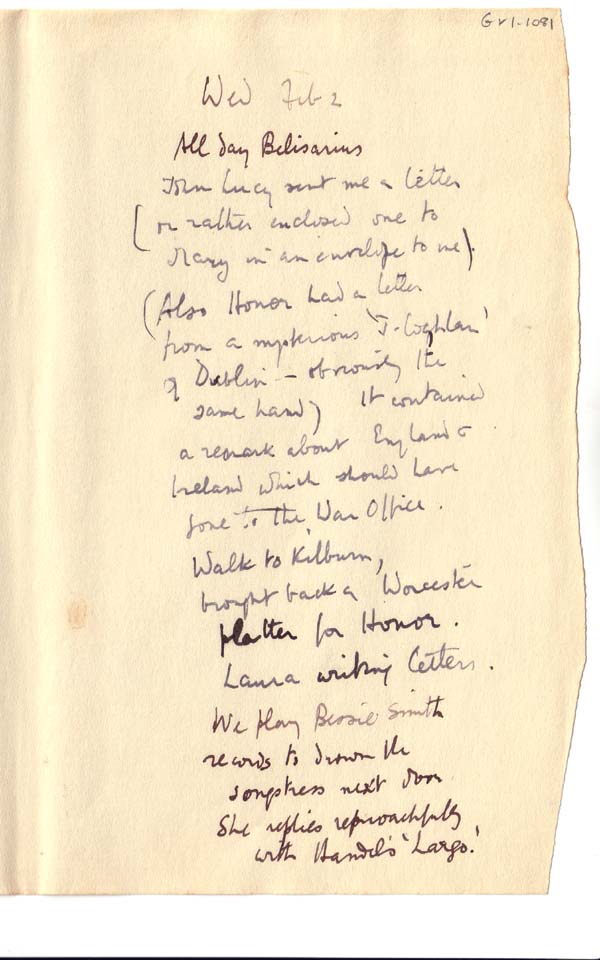 GV1-1081
Wed Feb 2
All day Belisarius
John Lucy sent me a letter
(or rather enclosed one to
Mary in an envelope to me).
(Also Honor had a letter
from a mysterious 'T. Coghlan'
of Dublin – obviously the
same hand) It contained
a remark about England &
Ireland which should have
gone to the War Office.
Walk to Kilburn,
brought back a Worcester
platter for Honor.
Laura writing letters.
We play Bessie Smith
records to drown the
songstress next door
She replies reproachfully
with Handel's 'Largo.'